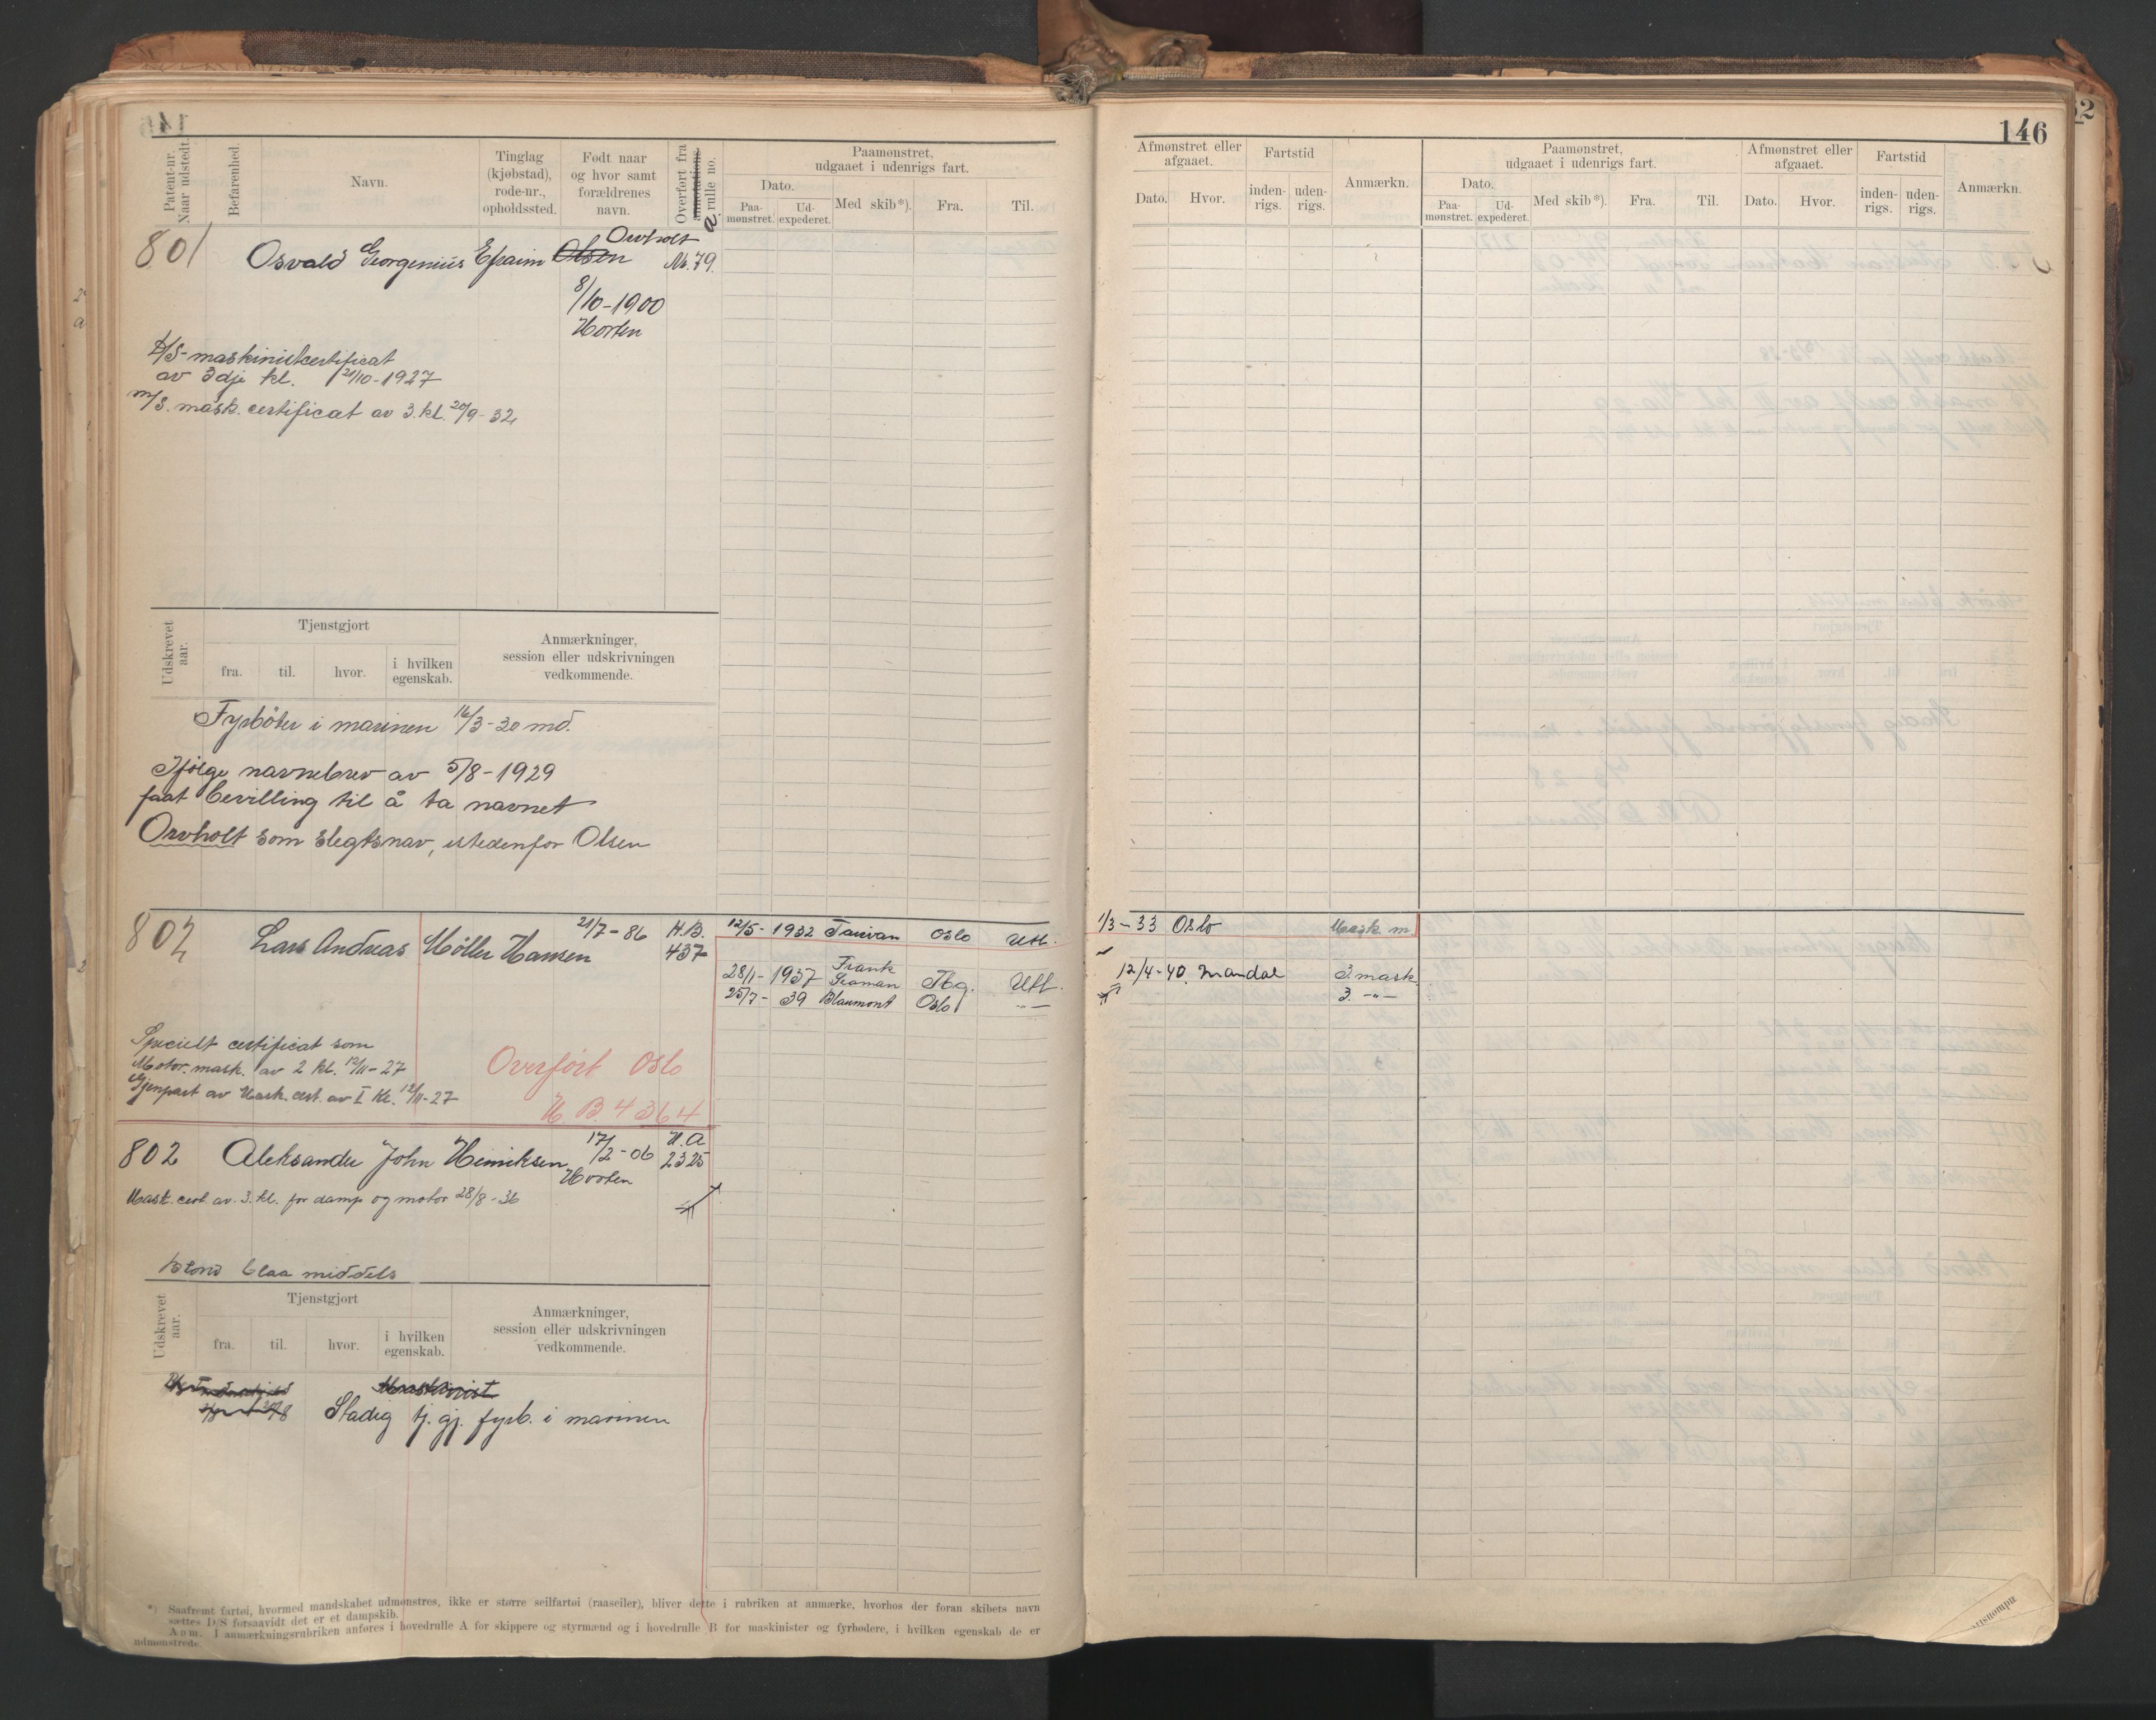 146
Patent-nr. Naar udstedt.
Befarenhed.
Navn.
Tinglag (kjøbstad), rode-nr., opholdssted.
Født naar og hvor samt forældrenes navn.
Overført fra annotations a rulle no.
Paamønstret, udgaaet i udenrigs fart.
Dato.
Paa-mønstret.
Ud-expederet.
Med skib*).
Fra.
Til.
Afmønstret eller afgaaet.
Dato.
Hvor.
Fartstid
inden-rigs.
uden-rigs.
Anmærkn.
Paamønstret, udgaaet i udenrigs fart.
Dato.
Paa-mønstret.
Ud-expederet.
Med skib*).
Fra.
Til.
Afmønstret eller afgaaet.
Dato.
Hvor.
Fartstid
inden-rigs.
uden-rigs.
Anmærkn.
Orvholt
801 Osvald Georgenius Efraim Olsen Nr. 79.
8/10-1900
Horten
D/S-maskinistcertificat
av 3dje kl. 21/10-1927
m/S. mask. certificat av 3. kl. 20/9-32
Udskrevet aar.
Tjenstgjort
fra.
til.
hvor.
i hvilken egenskab.
Anmærkninger, session eller udskrivningen vedkommende.
Fyrböter i marinen 16/3-20 md.
Ifølge navnebrev av 5/8-1929
faat bevilling til å ta navnet
Orvholt som slegtsnav, istedenfor Olsen
802 Lars Andreas Møller Hansen 21/7-86 H.B. 437
12/5-1932 Taiwan Oslo Utl. 1/3-33 Oslo Mask. m.
28/1-1937 Frank Seaman Tbg. Utl. 12/4-40. Mandal 3. mask.
25/7-39 Blaumont Oslo -"- 3. -"-
Specielt certificat som
Motor. mask. av 2 kl. 12/11-27
Gjenpart av Mask. cert. av I kl. 12/11-27
Overført Oslo
H. B. 4364
802 Aleksander John Henriksen 17/2-06 H.A 2325
Horten
Mask. cert. av. 3. kl. for damp og motor 28/8-36
Blond blaa middels
Udskrevet aar.
Tjenstgjort
fra.
til.
hvor.
i hvilken egenskab.
Anmærkninger, session eller udskrivningen vedkommende.
Maskinist
Stadig tj. gj. fyrb. i marinen
*) Saafremt fartøi, hvormed mandskabet udmønstres, ikke er større seilfartøi (raaseiler), bliver dette i rubriken at anmærke, hvorhos der foran skibets navn
sættes D/S forsaavidt det er et dampskib.
Anm. I anmærkningsrubriken anføres i hovedrulle A for skippere og styrmænd og i hovedrulle B for maskinister og fyrbødere, i hvilken egenskab de er
udmønstrede.